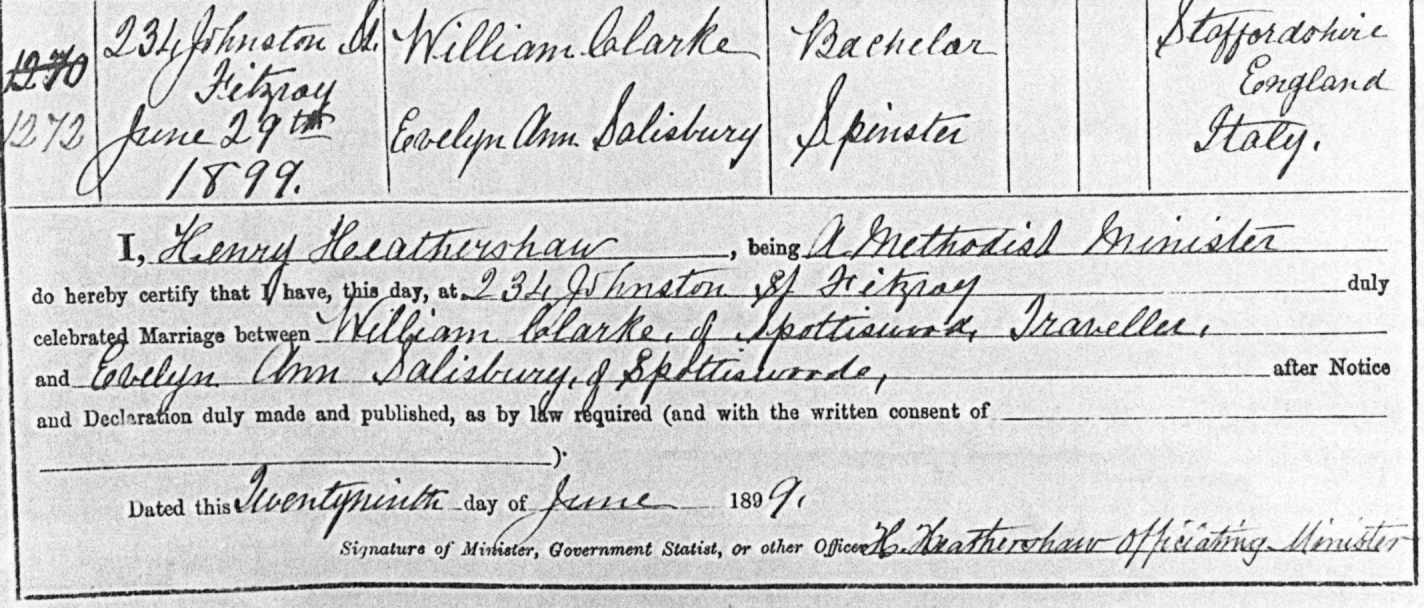 1270 234 Johnston St. William Clarke Bachelor Staffordshire
Fitzroy England
1272 June 29th Evelyn Ann Salisbury Spinster Italy.
1899.
I, Henry Heathershaw, being A Methodist Minister
do hereby certify that I have, this day, at 234 Johnston St Fitzroy duly
celebrated Marriage between William Clarke, of Spottiswood, Traveller,
and Evelyn Ann Salisbury, of Spottiswoode, after Notice
and Declaration duly made and published, as by law required (and with the written consent of
).
Dated this Twentyninth day of June 1899.
Signature of Minister, Government Statist, or other Officer H. Heathershaw Officiating Minister